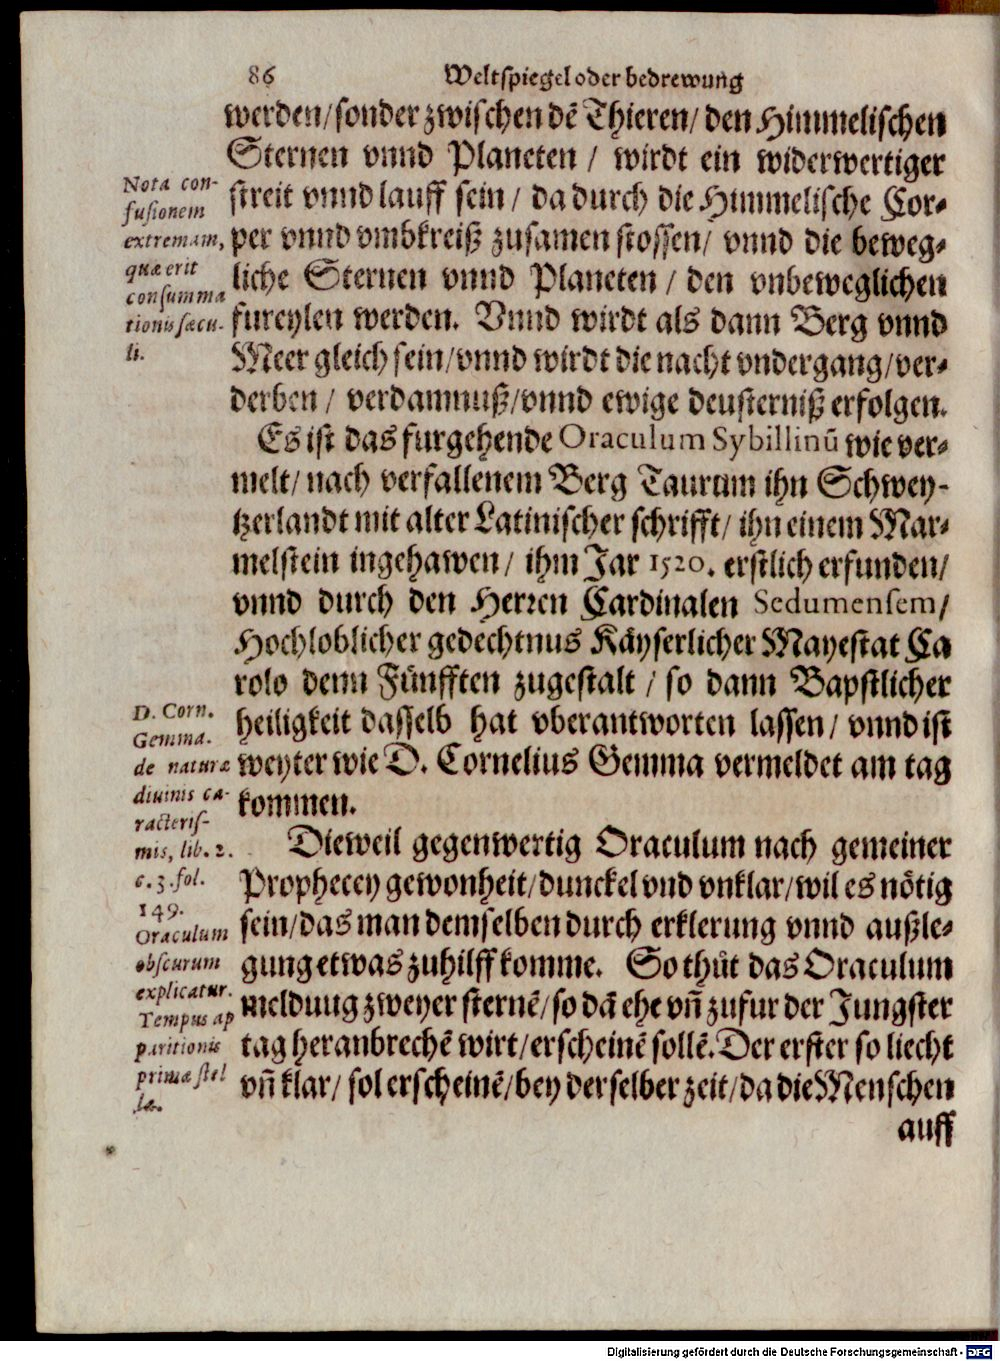 86 Weltspiegel oder bedrewung
werden/sonder zwischen dẽ Thieren/den Himmelischen
Sternen vnnd Planeten / wirdt ein widerwertiger
streit vnnd lauff sein / da durch die Himmelische Cor⸗
per vnnd vmbkreiß zusamen stossen/ vnnd die beweg⸗
liche Sternen vnnd Planeten / den vnbeweglichen
fureylen werden. Vnnd wirdt als dann Berg vnnd
Meer gleich sein/vnnd wirdt die nacht vndergang/ver⸗
derben / verdamnuß/vnnd ewige deusterniß erfolgen.
Es ist das furgehende Oraculum Sybillinũ wie ver⸗
melt/ nach verfallenem Berg Taurum ihn Schwey-
tzerlandt mit alter Latinischer schrifft/ ihn einem Mar⸗
melstein ingehawen / ihm Jar 1520. erstlich erfunden/
vnnd durch den Herren Cardinalen Sedumensem/
Hochloblicher gedechtnus Käyserlicher Mayestat Ca
rolo denn Fünfften zugestalt / so dann Bapstlicher
heiligkeit dasselb hat vberantworten lassen/ vnnd ist
weyter wie D. Cornelius Gemma vermeldet am tag
kommen.
Dieweil gegenwertig Oraculum nach gemeiner
Prophecey gewonheit/dunckel vnd vnklar/wil es nötig
sein/das man demselben durch erklerung vnnd außle⸗
gung etwas zuhilff komme. So thůt das Oraculum
meldung zweyer sternẽ/so dã ehe vñ zufur der Jungster
tag heranbrechẽ wirt/erscheinẽ sollẽ. Der erster so liecht
vñ klar/ sol erscheinẽ/bey derselber zeit/da die Menschen
auff
Nota con-
fusionem
extremam,
quæ erit
consumma
tionis sæcu-
li.
D. Corn.
Gemma.
de naturæ
diuinis ca-
racteris-
mis, lib. 2.
c. 3. fol.
149.
Oraculum
obscurum
explicatur.
Tempus ap
paritionis
primæ stel
læ.
Digitalisierung gefördert durch die Deutsche Forschungsgemeinschaft - DFG